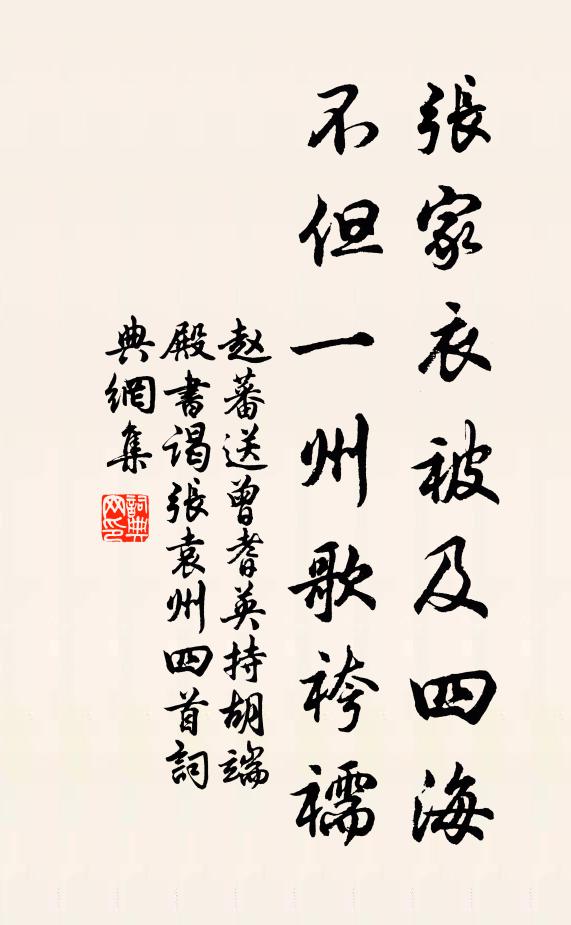 張家衣被及四海
不但一州歌袴襦
赵蕃送曾耆英持胡端
殿書謁張袁州四首詞
典網集
詞典
网印